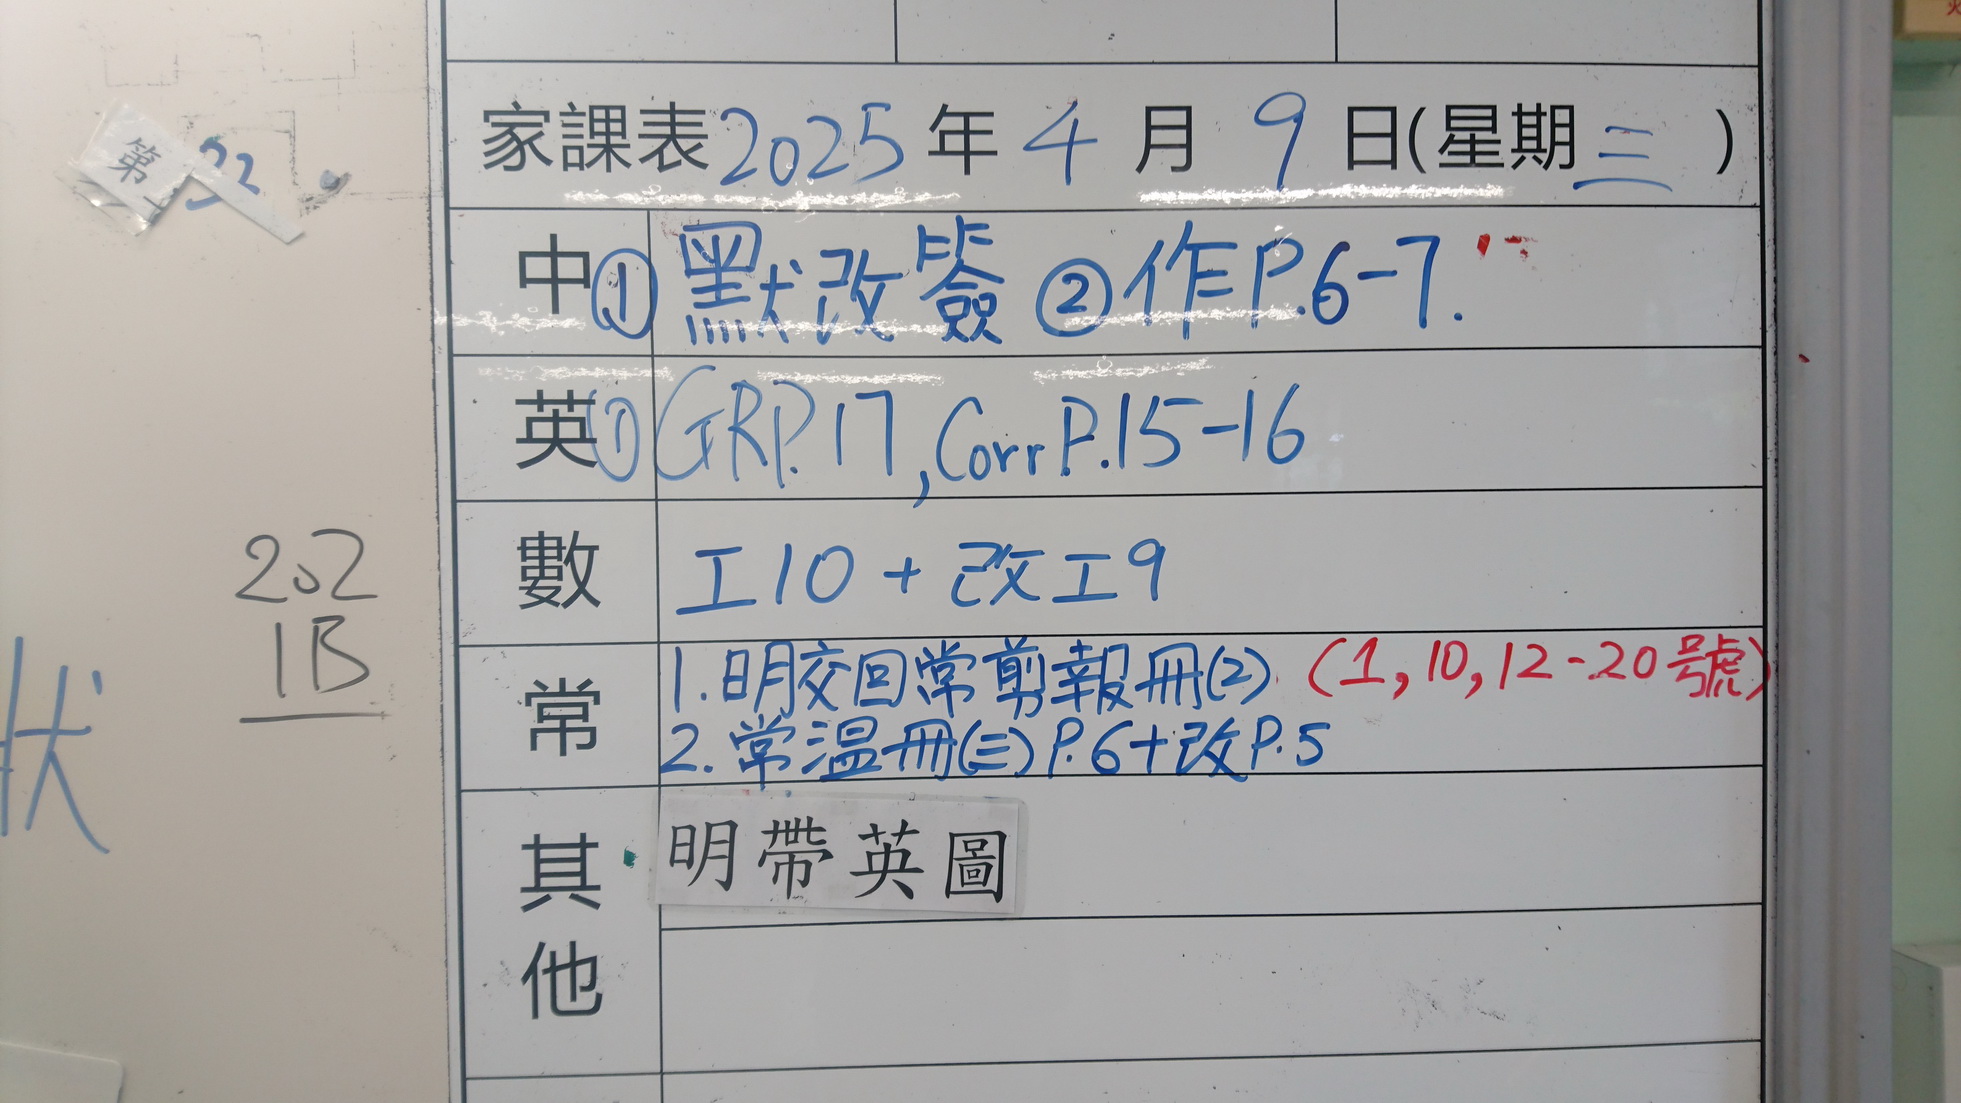 第
家課表2025年4月9日(星期三)
中① 默改簽 ②作P.6-7.
英① GRP.17, Corr P.15-16
數 工10 + 改工9
常 1.明交回常剪報冊(2) (1, 10, 12-20號)
2.常溫冊(三)P.6+改P.5
其他 明帶英圖
202
1B
状